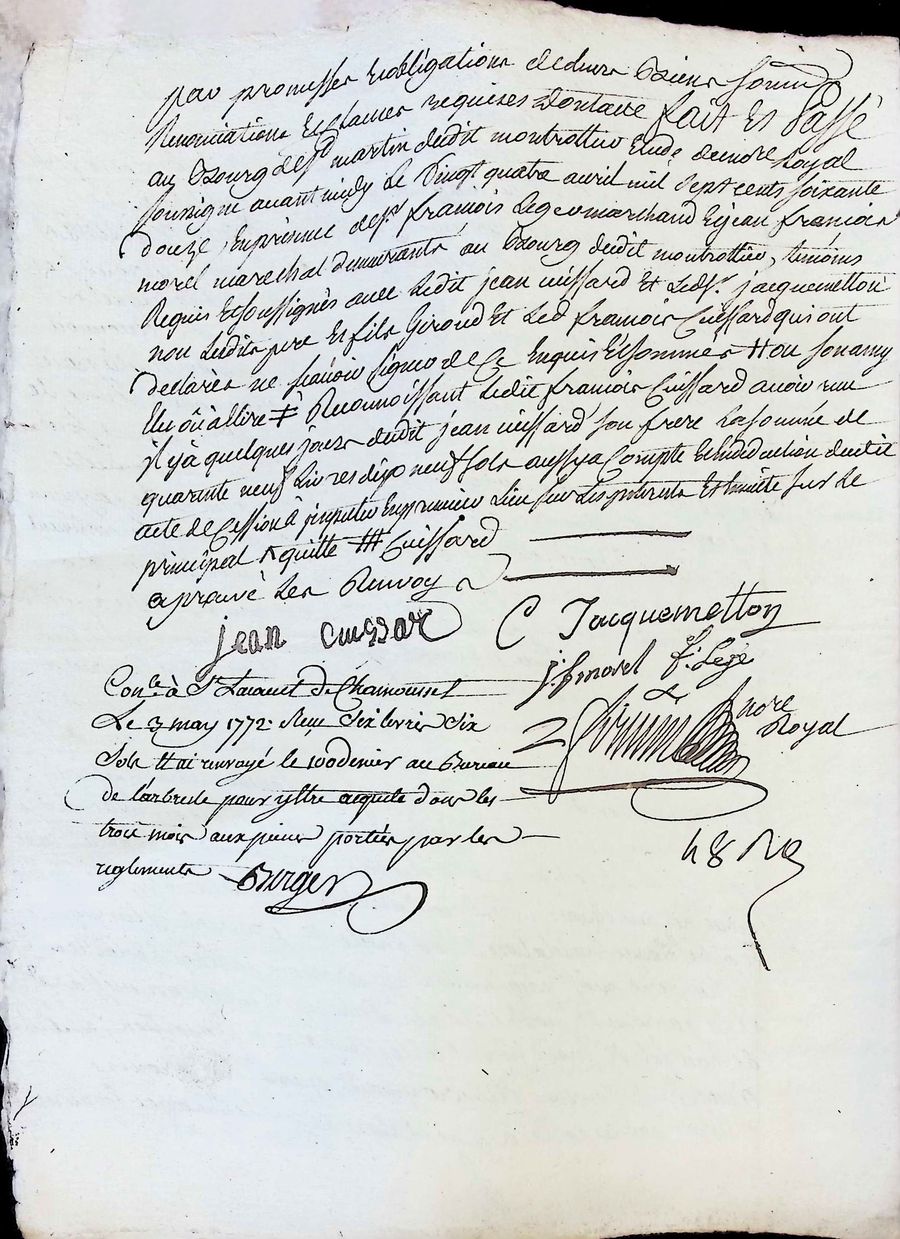 par promesses et obligations de leurs biens soum
Renonciations et clauses requises dont acte fait et Passé
au bourg de St martin dudit montrottier Etude de nore Royal
soussigné avant midy Le vingt quatre avril mil sept cents soixante
douze, En présence de sr françois Legeo marchand et jean françois
morel marechal demeurants au bourg dudit montrottier, témoins
Requis et soussignés avec Ledit jean cuissard et Led sr jacquemetton
non Lesdits pere et fils Giroud et Led françois Cuissard qui ont
declarés ne sçavoir signer de ce Enquis et sommés #
Reconnoissant Ledit françois Cuissard avoir reçu
il y a quelques jours dudit jean cuissard son frere La somme de
quarante neuf Livres dix neuf sols aussy a Compte et en deduction dudit
acte de Cession à imputer En premier Lieu sur Les interets et Ensuite sur le
principal # quitte ### Cuissard
aprouvé Les Renvoy
jean cuissar C Jacquemetton
j: f morel f: Legé
nore Royal
Con.le à St Laurent de Chamousset
Le 3 may 1772. Reçu Six livres Six
Sols # ai renvoyé le 100 denier au Bureau
de l'arbresle pour y être aquité dans les
trois mois aux peines portées par les
reglements Berger